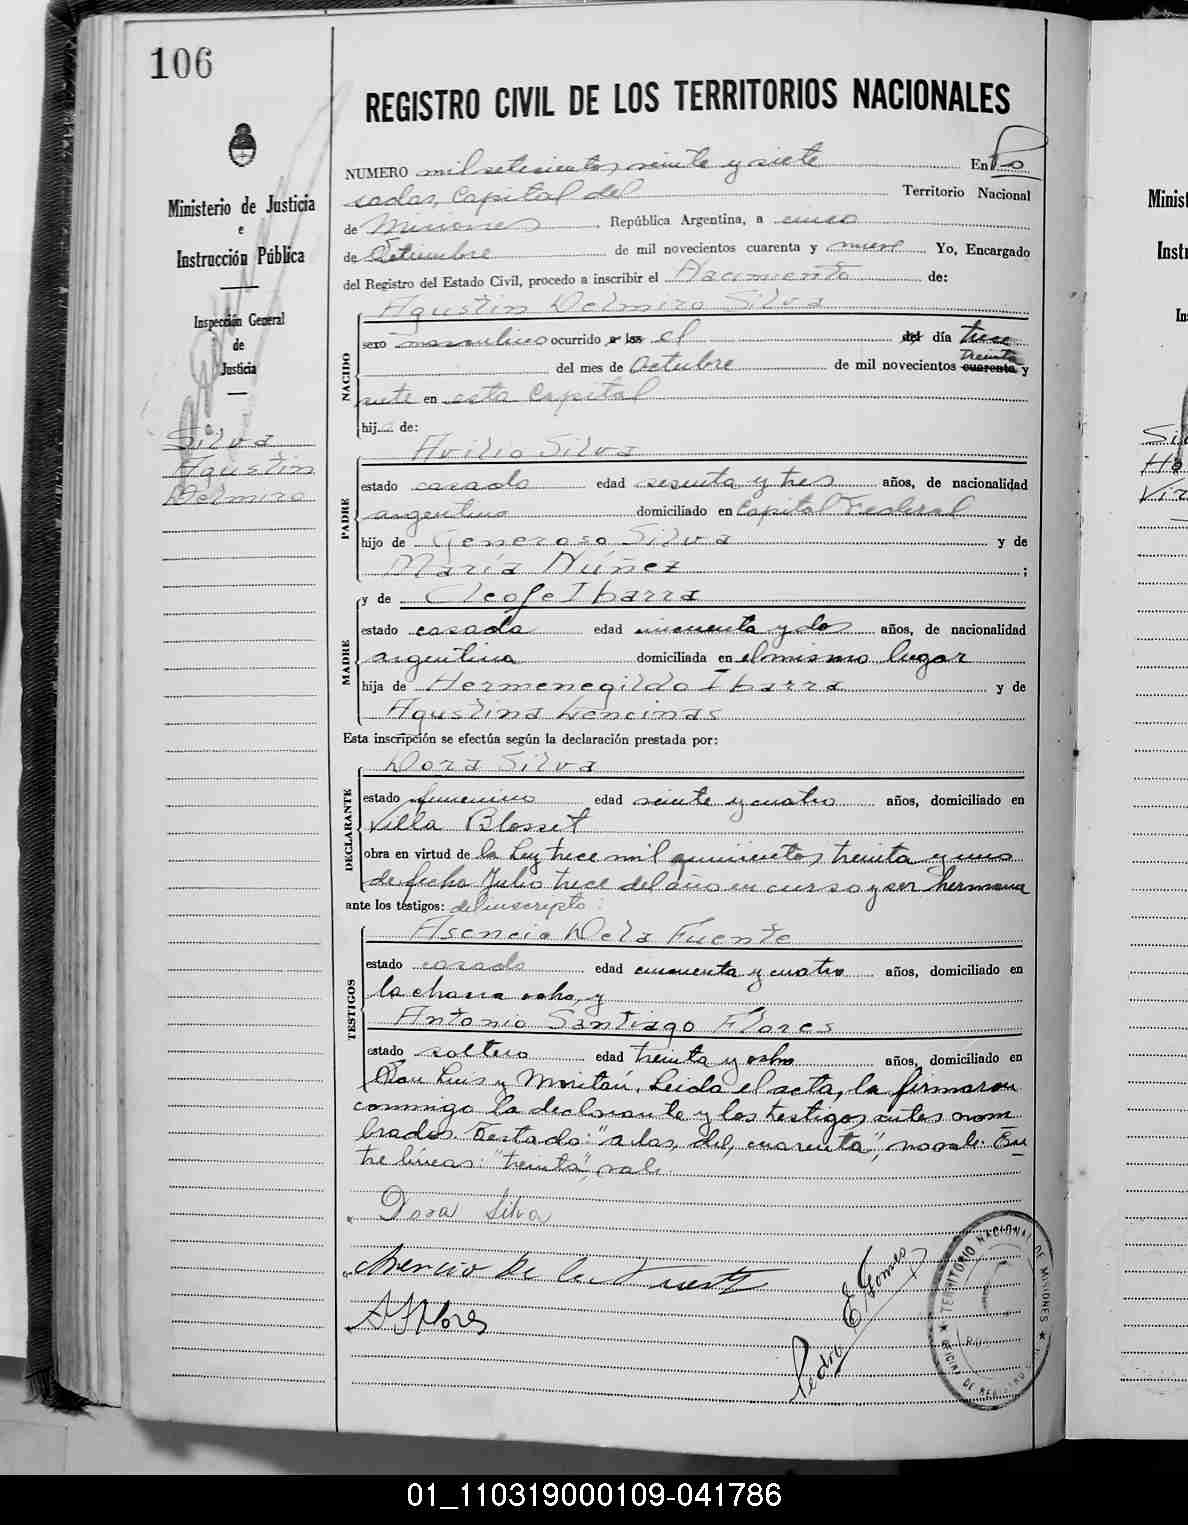 106
Ministerio de Justicia
e
Instrucción Pública
Inspección General
de
Justicia
Silva
Agustin
Delmiro
REGISTRO CIVIL DE LOS TERRITORIOS NACIONALES
NUMERO mil setecientos veinte y siete En Po
sadas, Capital del Territorio Nacional
de Misiones, República Argentina, a cinco
de Setiembre de mil novecientos cuarenta y nueve Yo, Encargado
del Registro del Estado Civil, procedo a inscribir el Nacimiento de:
Agustin Delmiro Silva
NACIDO
sexo masculino ocurrido a las el del día trece
treinta
del mes de Octubre de mil novecientos cuarenta y
siete en esta Capital
hijo de:
Avilio Silva
PADRE
estado casado edad sesenta y tres años, de nacionalidad
argentino domiciliado en Capital Federal
hijo de Generoso Silva y de
María Núñez ;
y de Cleofe Ibarra
MADRE
estado casada edad cincuenta y dos años, de nacionalidad
argentina domiciliada en el mismo lugar
hija de Hermenegildo Ibarra y de
Agustina Lencinas
Esta inscripción se efectúa según la declaración prestada por:
Dora Silva
DECLARANTE
estado femenino edad veinte y cuatro años, domiciliado en
Villa Blosset
obra en virtud de la Ley trece mil quinientos treinta y uno
de fecha Julio trece del año en curso y ser hermana
ante los testigos: del inscripto:
Asencio De la Fuente
TESTIGOS
estado casado edad cincuenta y cuatro años, domiciliado en
la chacra ocho, y
Antonio Santiago Flores
estado soltero edad treinta y ocho años, domiciliado en
San Luis y Moritán. Leída el acta, la firmaron
conmigo la declarante y los testigos antes nom
brados. Testado: "a las, del, cuarenta", no vale. En
tre líneas: "treinta", vale
Dora Silva
Asencio De la Fuente
A S Flores
Pedro E. Gomes
TERRITORIO NACIONAL DE MISIONES
01_110319000109-041786